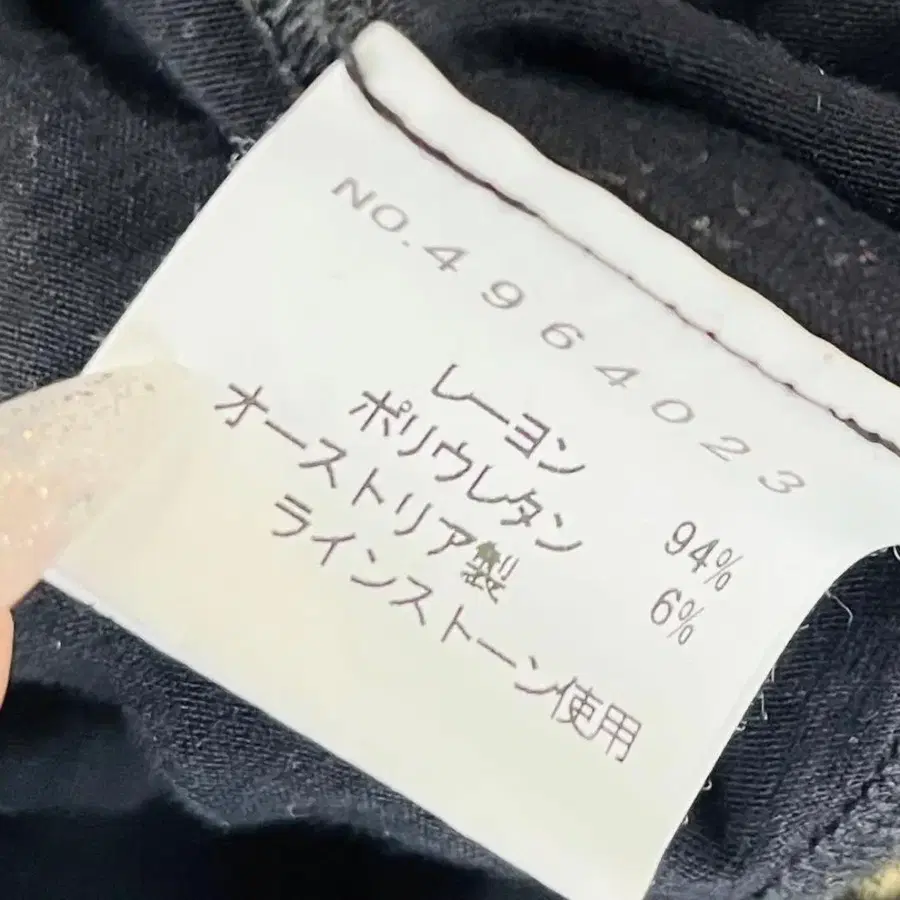 NO.4964023
レーヨン 94%
ポリウレタン 6%
オーストリア製
ラインストーン使用